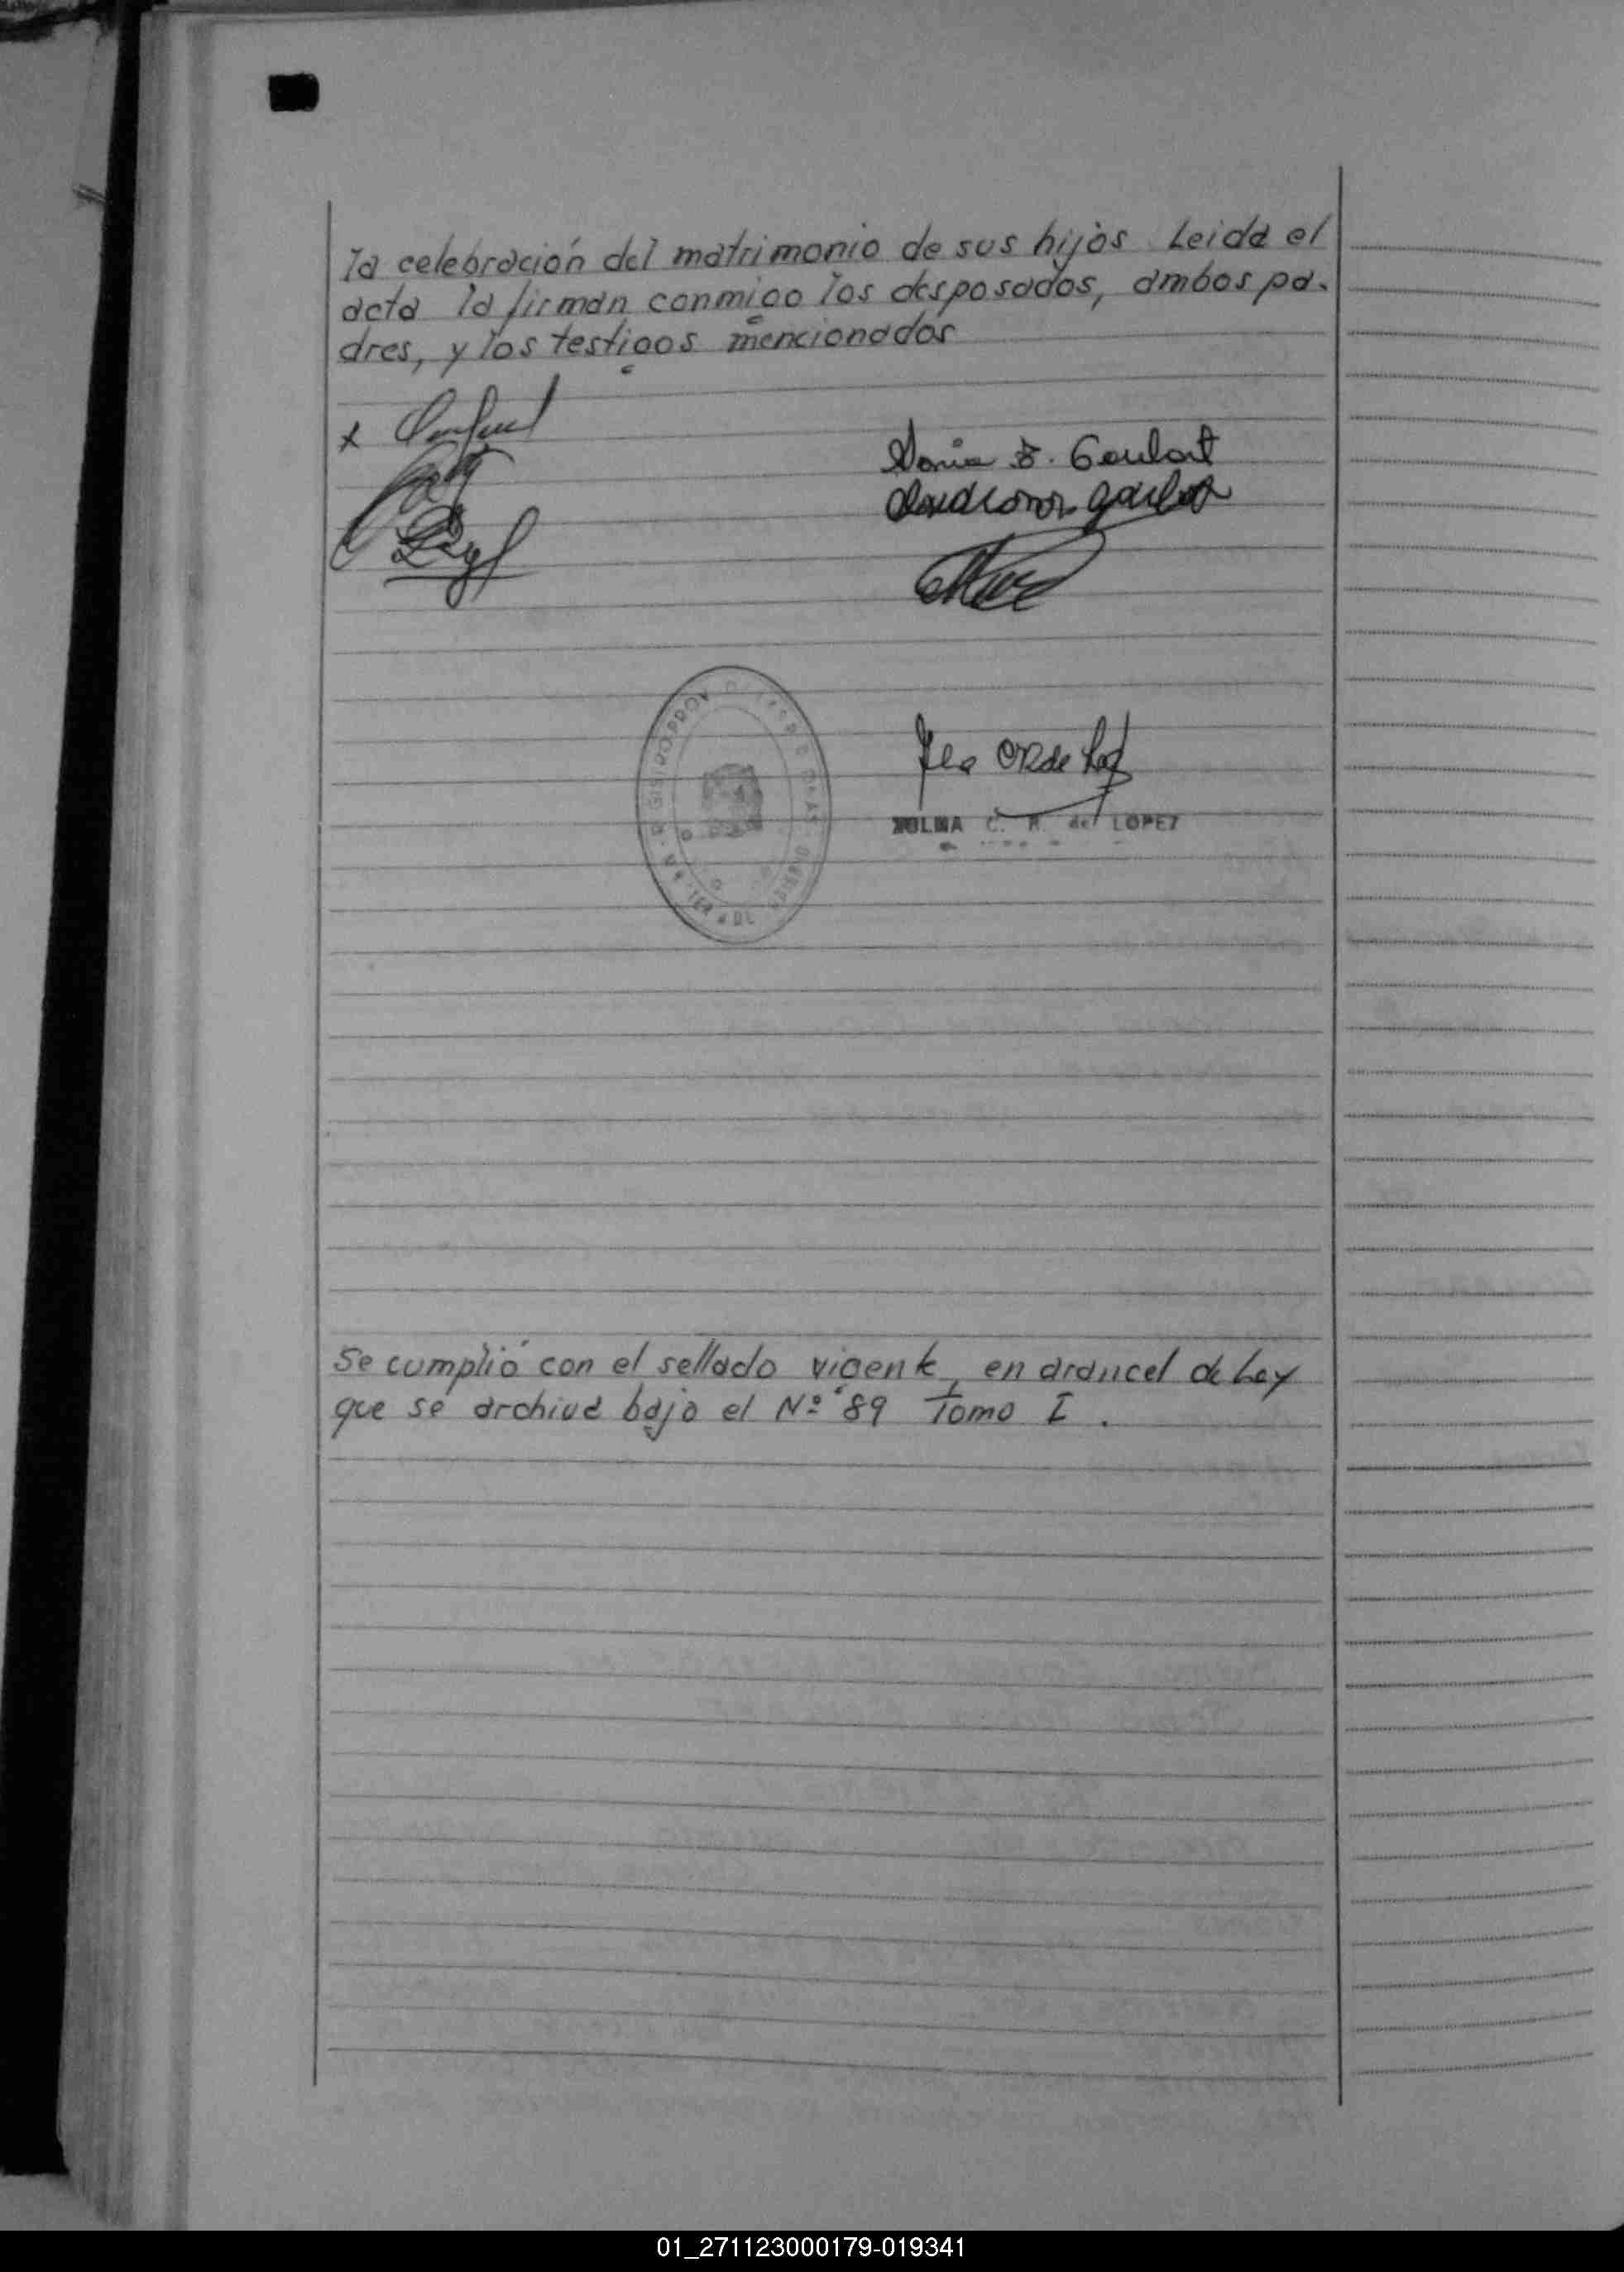 la celebración del matrimonio de sus hijos. Leida el
acta la firman conmigo los desposados, ambos pa-
dres, y los testigos mencionados
x
Sonia B. Goulart
Goulart
C. R. de LOPEZ
Se cumplió con el sellado vigente, en arancel de Ley
que se archiva bajo el Nº 89 Tomo I.
01_271123000179-019341